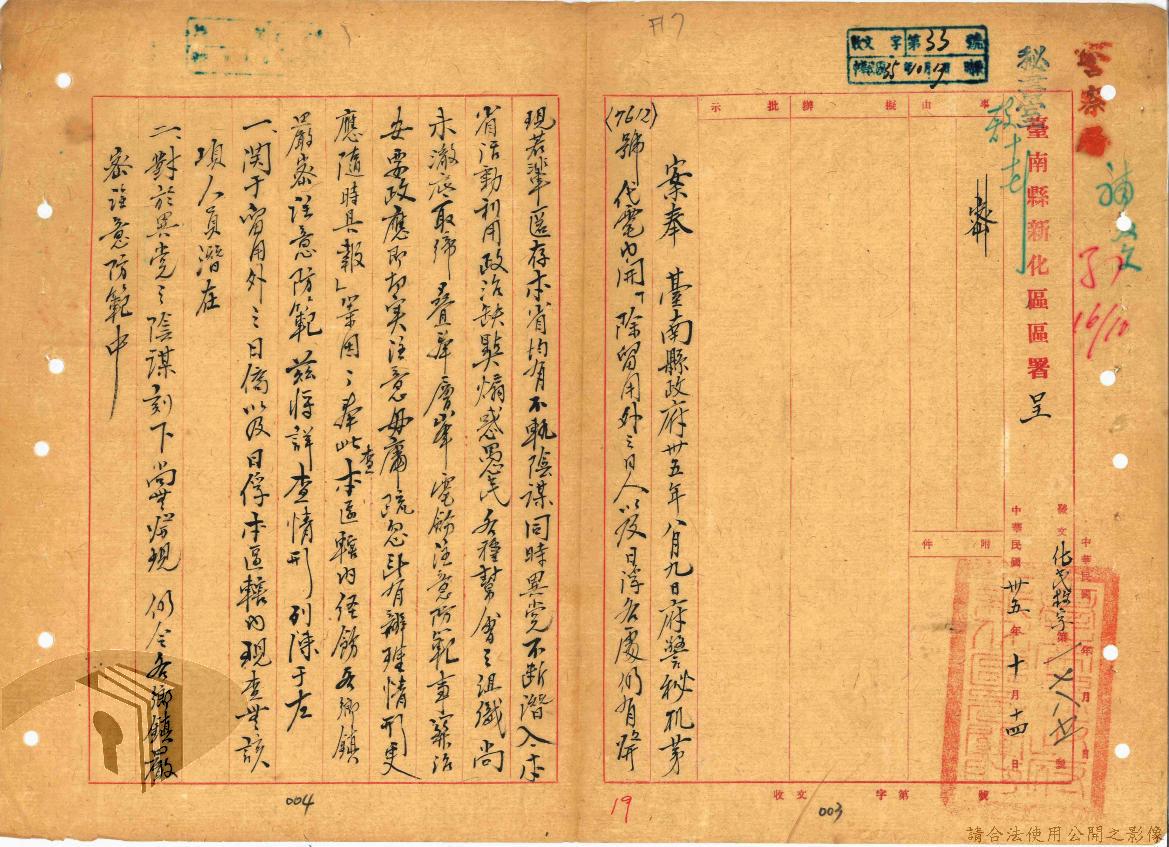 警察局
秘書室
臺南縣新化區區署 呈
中華民國 年 月 日
發文 字第一七八五號
中華民國卅五年十月十四日
收文 字第33號
35年10月17日
16/10
事由
擬辦
批示
附件
密
案奉 臺南縣政府卅五年八月九日府警秘机第
(7612)號代電內開「除留用外之日人以及日俘各處仍有
現若輩匿存本省均有不軌陰謀同時異党不斷潛入本
省活動利用政治缺點煽惑愚民各種幫會之組織尚
未澈底取締 疊奉層峯電飭注意防範事関治
安要政應即切实注意毋庸疏忽 有辦理情形更
應隨時具報」等因、奉此查本區轄內經飭各鄉鎮
嚴密注意防範茲將詳查情形列陳于左
一、関于留用外之日僑以及日俘本區轄內現查無該
項人員潛在
二、對於異党之陰謀刻下尚無發現 仍令各鄉鎮嚴
密注意防範中
收文 字第 號
19
003
004
請合法使用公開之影像